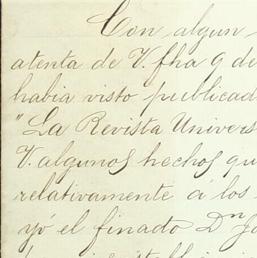 Con algun
atenta de V. fha 9 de
habia visto publicad
"La Revista Univers
V. algunos hechos qu
relativamente á los
yó el finado Dn Jo